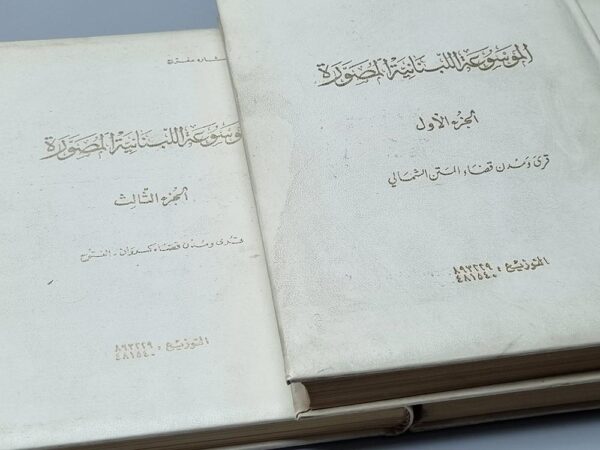 الموسوعة اللبنانية المصورة
الجزء الأول
قرى ومدن قضاء المتن الشمالي
التوزيع : ٨٩٣٢٢٩
٤٨١٥٤٠
موسوعة اللبنانية المصورة
الجزء الثالث
قرى ومدن قضاء كسروان - الفتوح
التوزيع : ٨٩٣٢٢٩
٤٨١٥٤٠